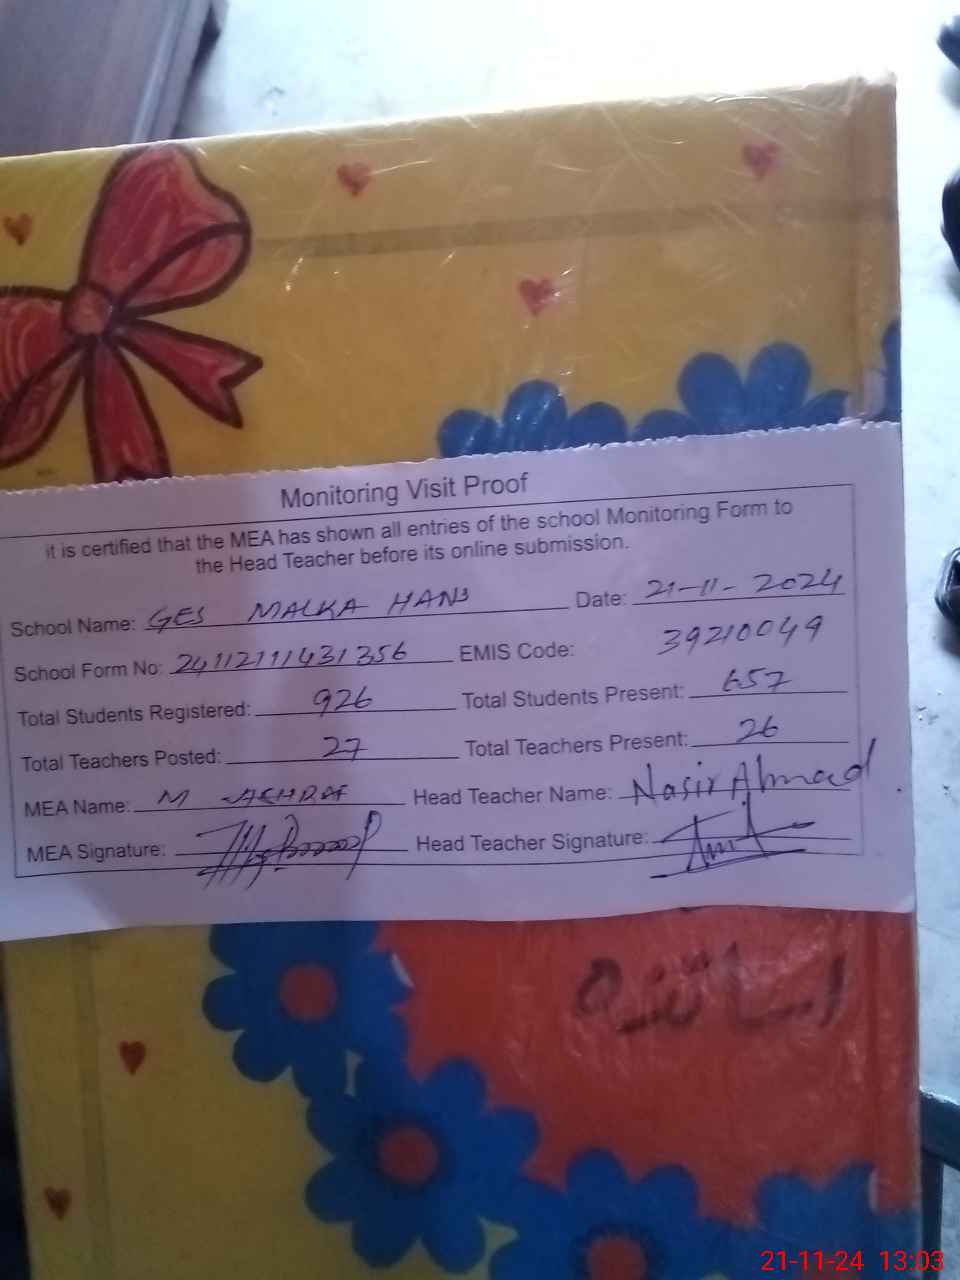 Monitoring Visit Proof
it is certified that the MEA has shown all entries of the school Monitoring Form to
the Head Teacher before its online submission.
School Name: GES MALKA HANS Date: 21-11-2024
School Form No: 24112111431356 EMIS Code: 39210049
Total Students Registered: 926 Total Students Present: 657
Total Teachers Posted: 27 Total Teachers Present: 26
MEA Name: M ASHRAF Head Teacher Name: Nasir Ahmad
MEA Signature: Head Teacher Signature:
اساتذہ
21-11-24 13:03